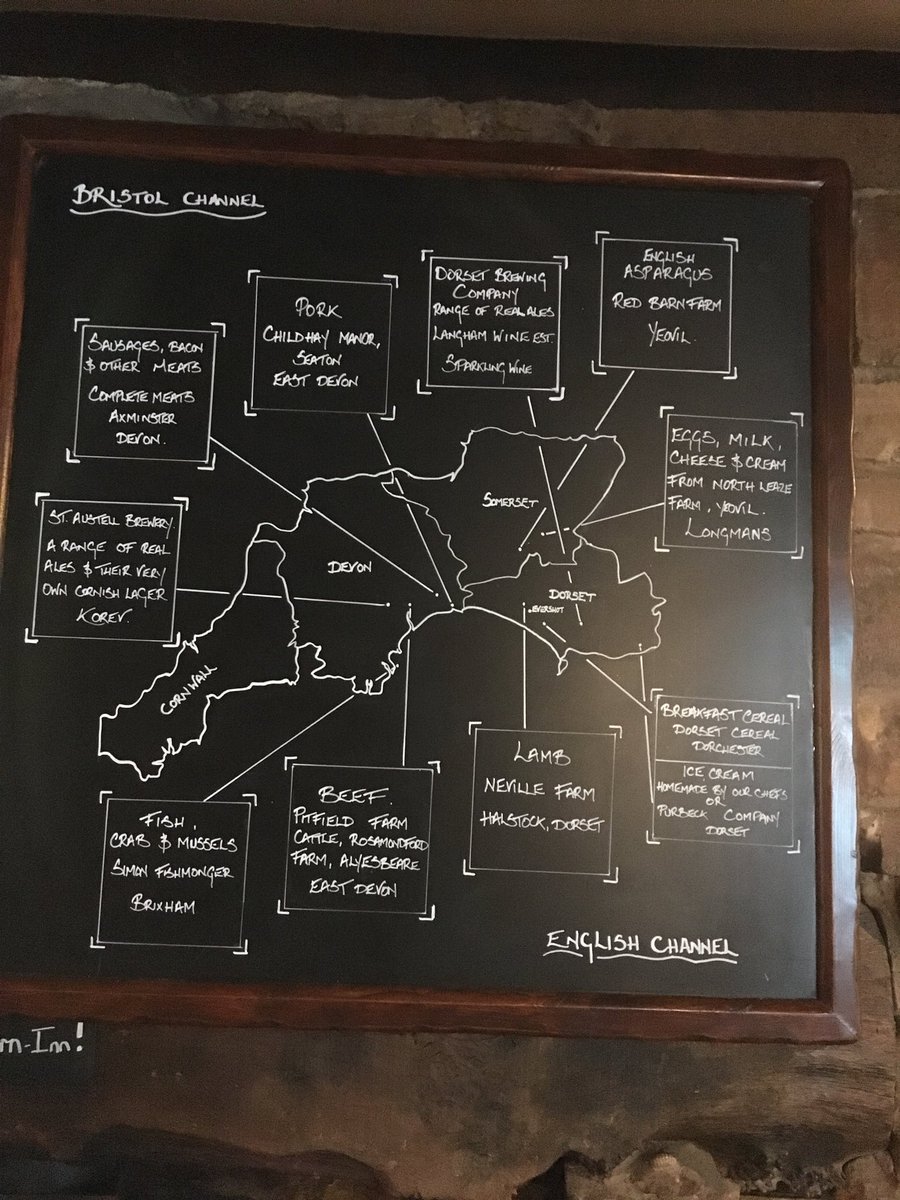 BRISTOL CHANNEL
SAUSAGES, BACON
& OTHER MEATS
COMPLETE MEATS
AXMINSTER
DEVON.
PORK
CHILDHAY MANOR,
SEATON
EAST DEVON
DORSET BREWING
COMPANY
RANGE OF REAL ALES
LANGHAM WINE EST.
SPARKLING WINE
ENGLISH
ASPARAGUS
RED BARN FARM
YEOVIL.
EGGS, MILK,
CHEESE & CREAM
FROM NORTH LEAZE
FARM, YEOVIL.
LONGMANS
ST. AUSTELL BREWERY
A RANGE OF REAL
ALES & THEIR VERY
OWN CORNISH LAGER
KOREV.
SOMERSET
DEVON
DORSET
EVERSHOT
CORNWALL
FISH,
CRAB & MUSSELS
SIMON FISHMONGER
BRIXHAM
BEEF.
PITFIELD FARM
CATTLE, ROSAMONDFORD
FARM, ALYESBEARE
EAST DEVON
LAMB
NEVILLE FARM
HALSTOCK, DORSET
BREAKFAST CEREAL
DORSET CEREAL
DORCHESTER
ICE CREAM
HOMEMADE BY OUR CHEFS
OR
PURBECK COMPANY
DORSET
ENGLISH CHANNEL
m-Im!